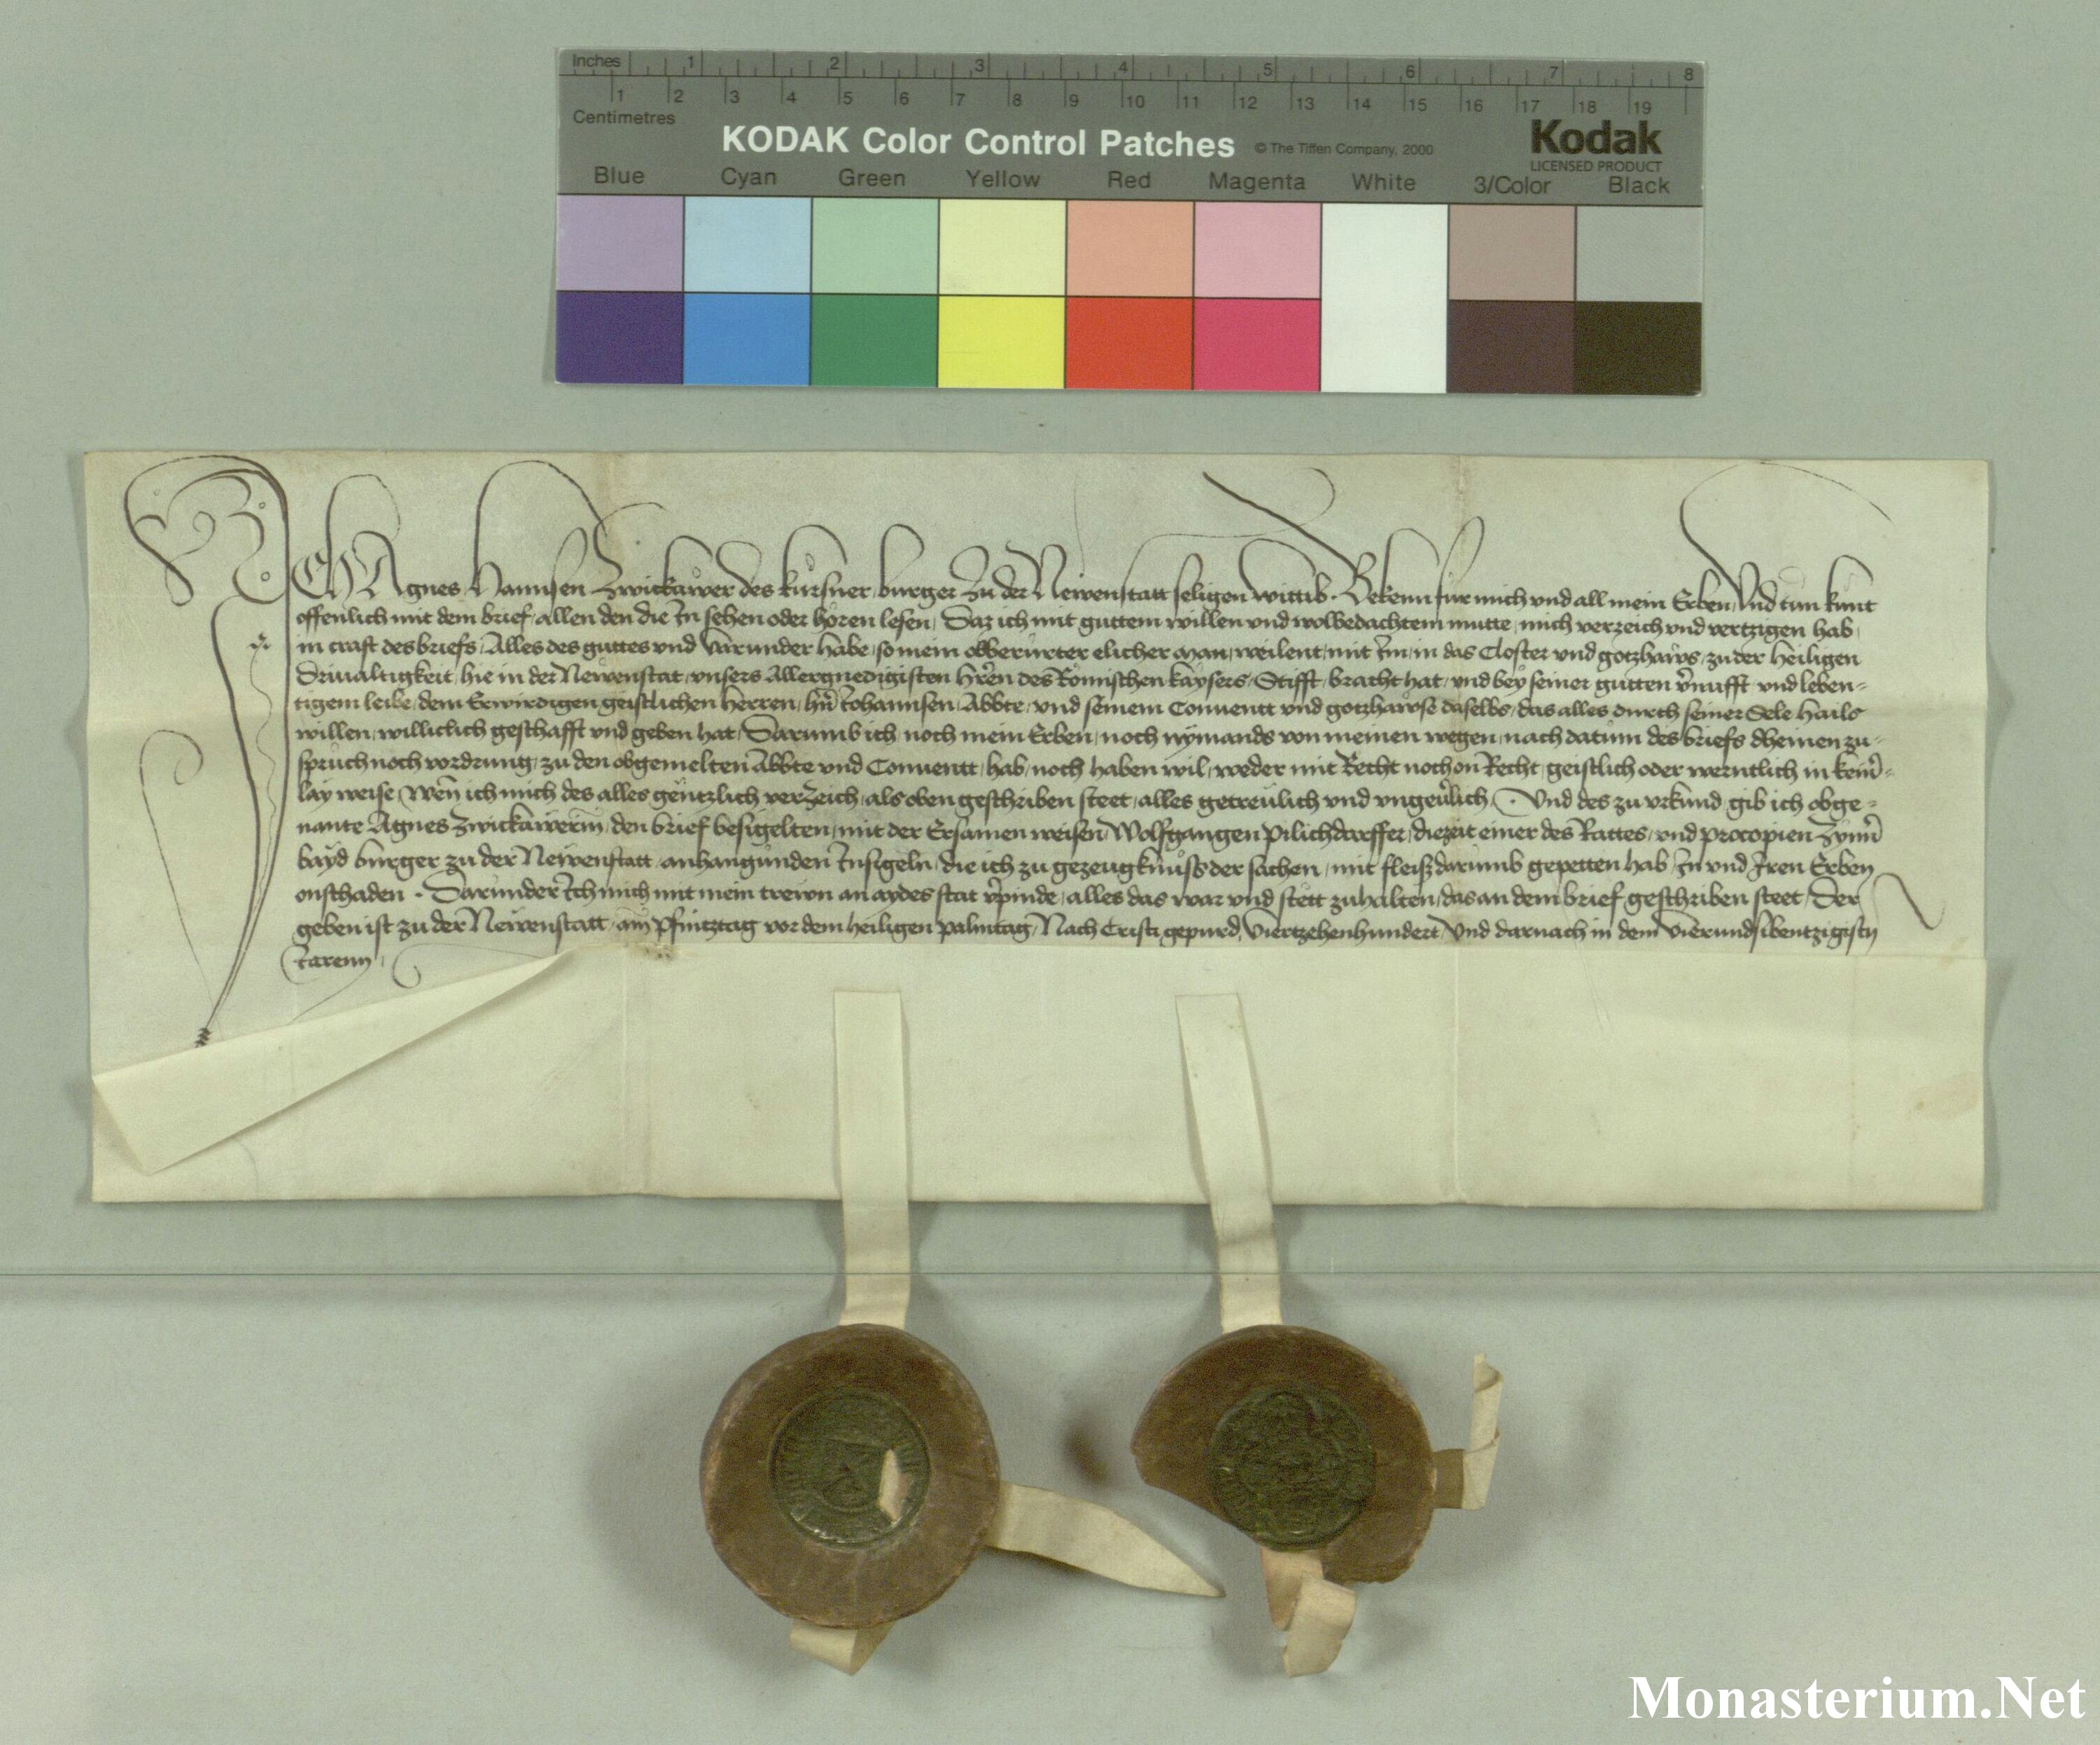 Inches 1 2 3 4 5 6 7 8
1 2 3 4 5 6 7 8 9 10 11 12 13 14 15 16 17 18 19
Centimetres
KODAK Color Control Patches © The Tiffen Company, 2000 Kodak
LICENSED PRODUCT
Blue Cyan Green Yellow Red Magenta White 3/Color Black
ICH Agnes Hannsen Zwickawer des kursner burger zu der Newenstatt seligen wittib. Bekenn fur mich vnd all mein Erben Vnd tun kunt
offenlich mit dem brief allen den die In sehen oder horen lesen, Daz ich mit guttem willen vnd wolbedachtem mutte mich verzeich vnd vertzigen hab
in craft des briefs, Alles des guttes vnd varunder habe, so mein obberurter elicher man, weilent mit Im, in das Closter vnd gotzhaws, zu der heiligen
Driualtigkeit, hie in der Newenstat, vnsers Allergnedigisten Hren des Romischen kaysers, Stifft, bracht hat, vnd bey seiner gutten vnufft vnd leben-
tigem leibe, dem Erwirdigen geistlichen herren, hn Johannsen, Abbte, vnd seinem Conuentt vnd gotzhawse daselbs, das alles durch seiner Sele hails
willen, williclich geschafft vnd geben hat, Darumb ich noch mein Erben, noch nymands von meinen wegen, nach datum des briefs dheinen zu-
spruch noch vordrung, zu den obgemelten Abbte vnd Conuentt, hab, noch haben wil, weder mit Recht noch on Recht, geistlich oder werntlich in kein-
lay weise, Wen ich mich des alles gentzlich verzeich, als oben geschriben steet, alles getreulich vnd vngeulich. Vnd des zu vrkund gib ich obge-
nante Agnes Zwickawerin, den brief besigelten, mit der Ersamen weisen Wolfgangen Pilichdorffer, diezeit einer des Rattes, vnd Procopien
bayd burger zu der Newenstatt, anhangunden Insigeln, die ich zu gezeugknuss der sachen, mit fleisz darumb gepetten hab, In vnd Iren Erben
onschaden. Darunder Ich mich mit mein trewn an aydes stat vpinde, alles das war vnd stett zuhalten, das an dem brief geschriben steet, Der
geben ist zu der Newenstatt, am Pfintztag vor dem heiligen palmtag, Nach Cristi gepurd, Viertzehenhundert, Vnd darnach in dem Vierundsibentzigistn
Jarenn
Monasterium.Net